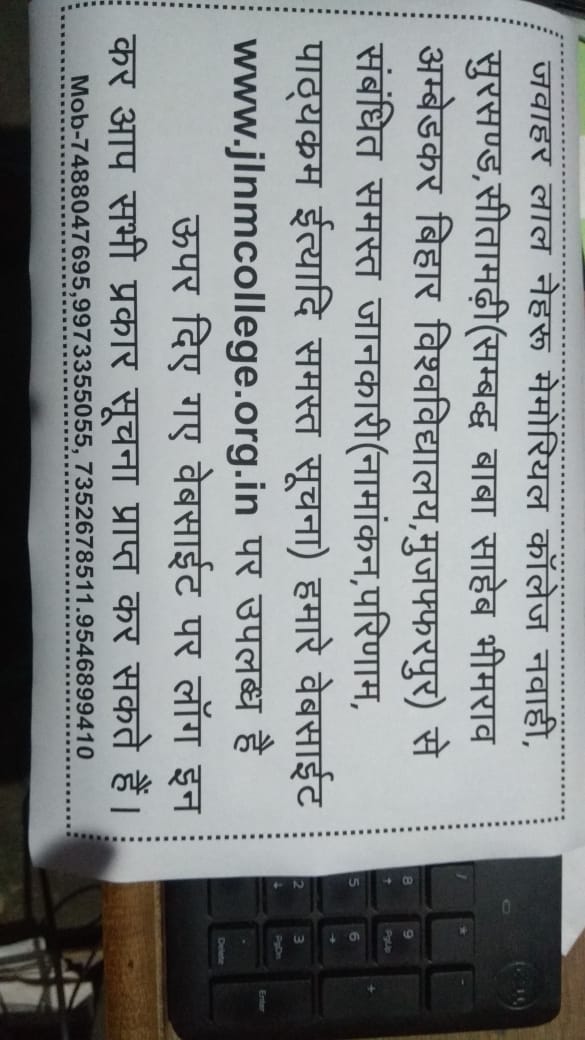 जवाहर लाल नेहरू मेमोरियल कॉलेज नवाही,
सुरसण्ड,सीतामढ़ी(सम्बद्ध बाबा साहेब भीमराव
अम्बेडकर बिहार विश्वविद्यालय,मुजफ्फरपुर) से
संबंधित समस्त जानकारी(नामांकन,परिणाम,
पाठ्यकम ईत्यादि समस्त सूचना) हमारे वेबसाईट
www.jlnmcollege.org.in पर उपलब्ध है
ऊपर दिए गए वेबसाईट पर लॉग इन
कर आप सभी प्रकार सूचना प्राप्त कर सकते हैं।
Mob-7488047695,9973355055, 7352678511.9546899410
/ * -
8 9 +
↑ PgUp
5 6
→
2 3 Enter
↓ PgDn
.
Delete